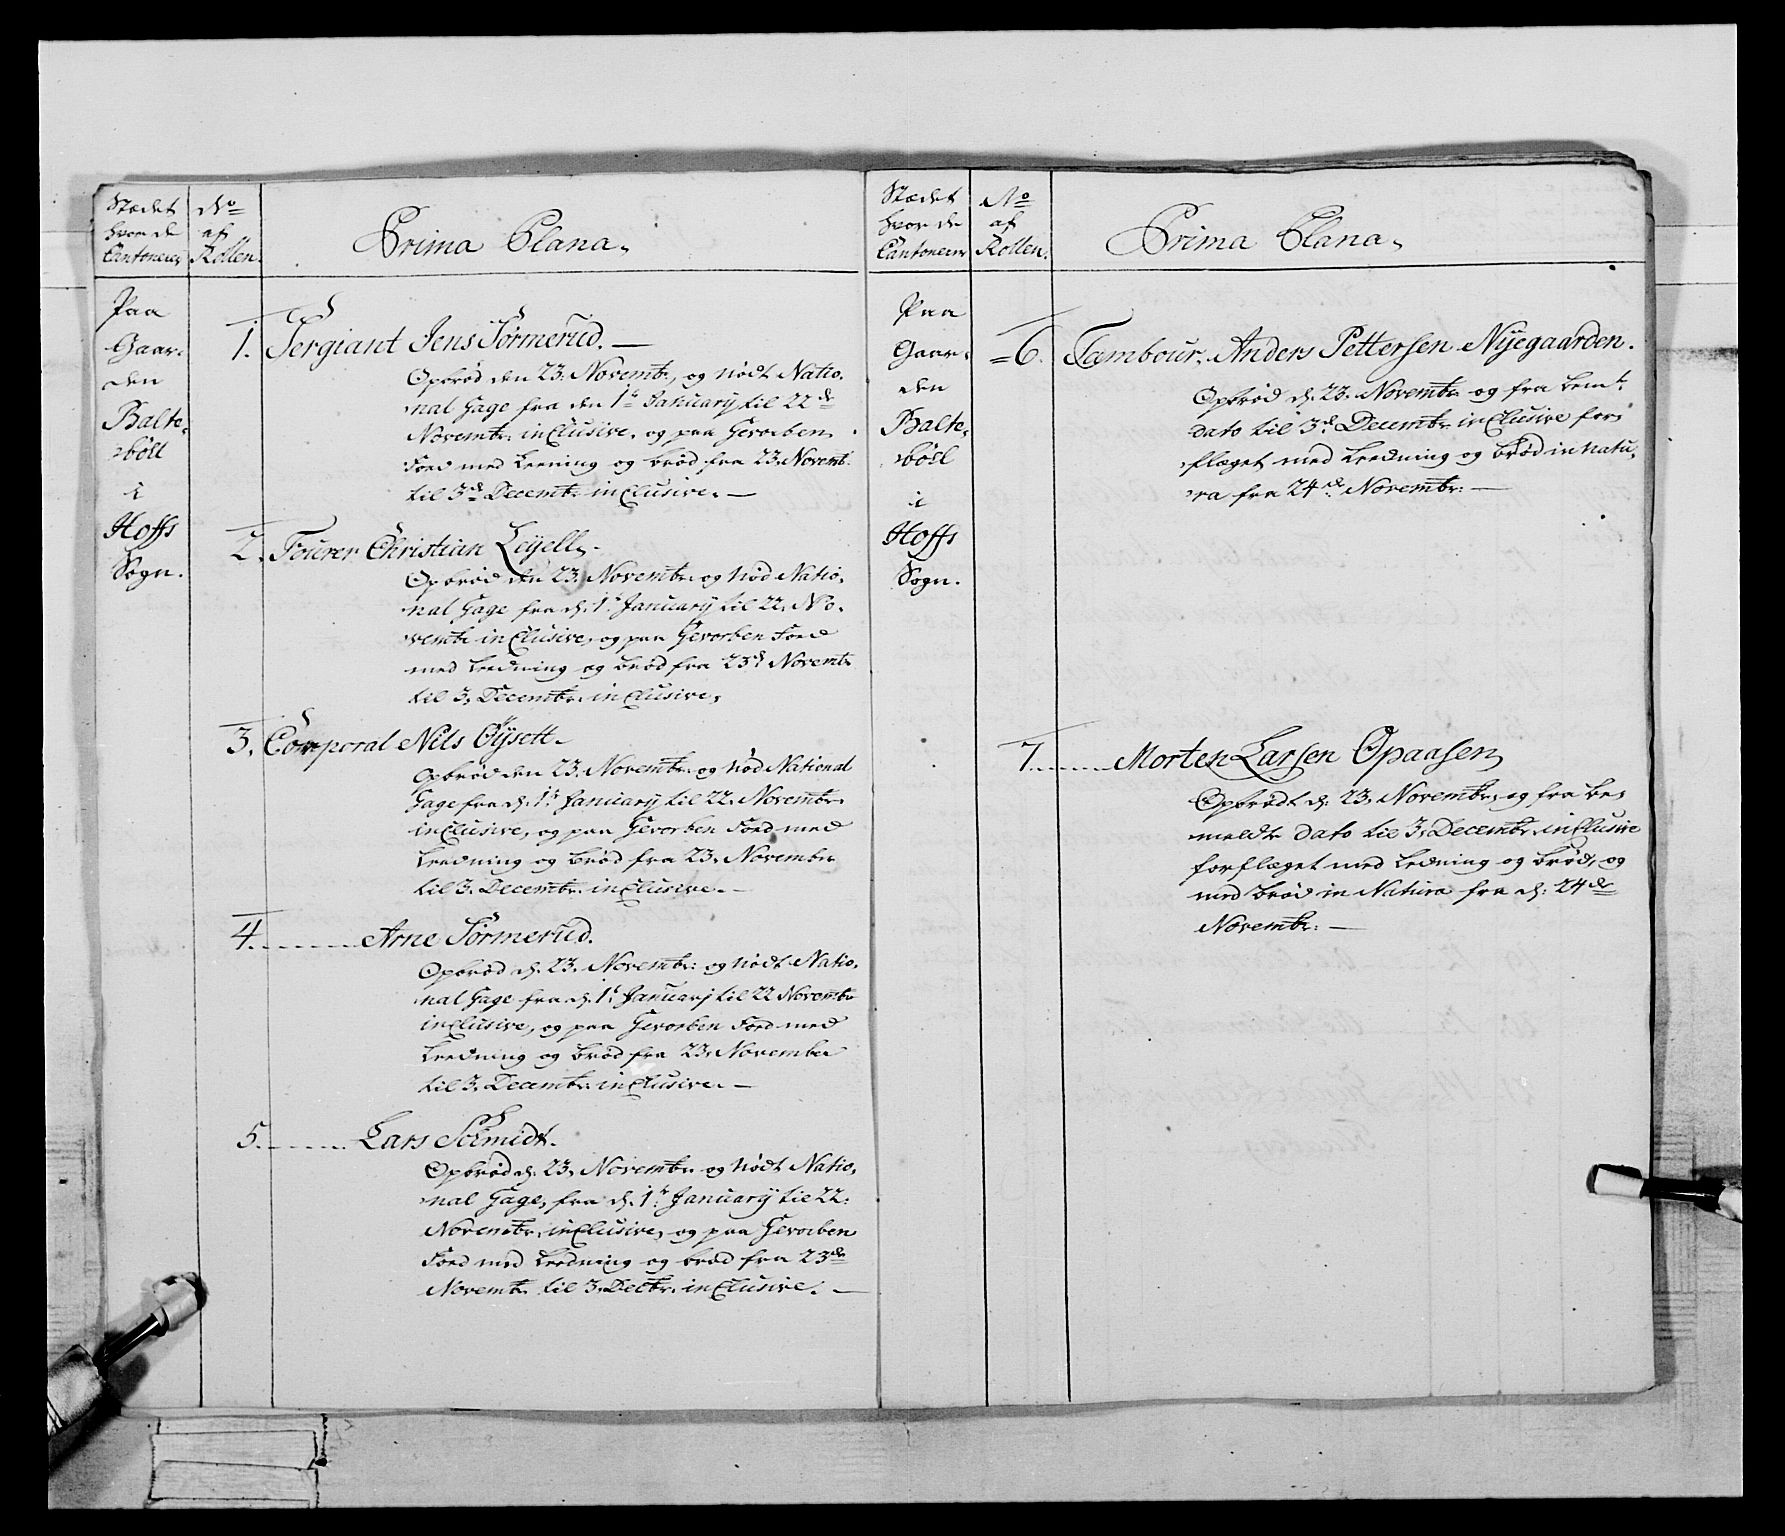 Stædet
hvor de
Cantonerer
No
af
Rollen.
Prima Plana.
Paa
Gaar-
den
Balte-
böll
i
Hoffs
Sogn.
1. Sergiant Jens Sörmerud. —
Opbröd den 23. Novembr, og nödt Natio-
nal Gage fra den 1te January til 22de
Novembr: inclusive, og paa Gevorben
Foed med Leening og bröd fra 23. Novemb:
til 3de Decembr inclusive. —
2. Fourer Christian Leÿell.
Opbröd den 23. Novembr. og nöd Natio-
nal Gage fra d: 1t January til 22. No-
vembr inclusive, og paa Gevorben Foed
med Leedning og bröd fra 23d Novembr
til 3. Decembr. inclusive,
3. Corporal Nils Öÿsett.
Opbröd den 23. Novembr. og nöd National
Gage fra d: 1t January til 22. Novembr.
inclusive, og paa Gevorben Foed med
Leedning og bröd fra 23. November
til 3. Decembr. inclusive. —
4. ........ Arne Sörmerud.
Opbröd d: 23. Novembr: og nödt Natio-
nal Gage fra d: 1t January til 22 Novembr
inclusive, og paa Gevorben Foed med
Leedning og bröd fra 23. November
til 3. Decembr. inclusive. —
5. ....... Lars Schmidt.
Opbröd d: 23. Novembr og nödt Natio-
nal Gage, fra d: 1t Januarÿ til 22.
Novembr. inclusive, og paa Gevorben
Foed med Leedning og bröd fra 23de
Novembr. til 3. Decbr. inclusive. —
Stædet
hvor de
Cantonerer
No
af
Rollen.
Prima Plana.
Paa
Gaar-
den
Balte-
böll
i
Hoffs
Sogn.
6. Tambour. Anders Pettersen Nÿegaarden.
Opbröd d: 23. Novembr og fra bemt:
dato til 3d Decembr inclusive for-
flæget med Leedning og bröd in natu-
ra fra 24de Novembr: —
7. ........ Morten Larsen Opaasen
Opbrödt d: 23. Novembr, og fra be-
meldte dato til 3. Decembr. inclusive
forflæget med Ledning og bröd, og
med bröd in Natura fra d: 24de
Novembr: —